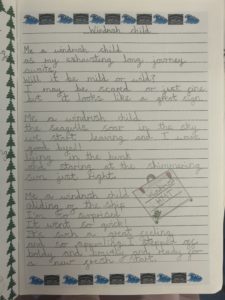 Windrush child
Me a windrush child
as my exhausting long journey
awaits
Will it be mild or wild?
I may be scared or just fine
but it looks like a great sign.
Me a windrush child
the seagulls soar in the sky
we start leaving and I wave
good bye!!
lying in the bunk
and staring at the shimmering
sun just right.
Me a windrush child
sliding or the ship
I'm so surprised
It went so quick!
It's such a great feeling
and so appealing I stepped of
boldly and proudly and ready for
a new fresh start.